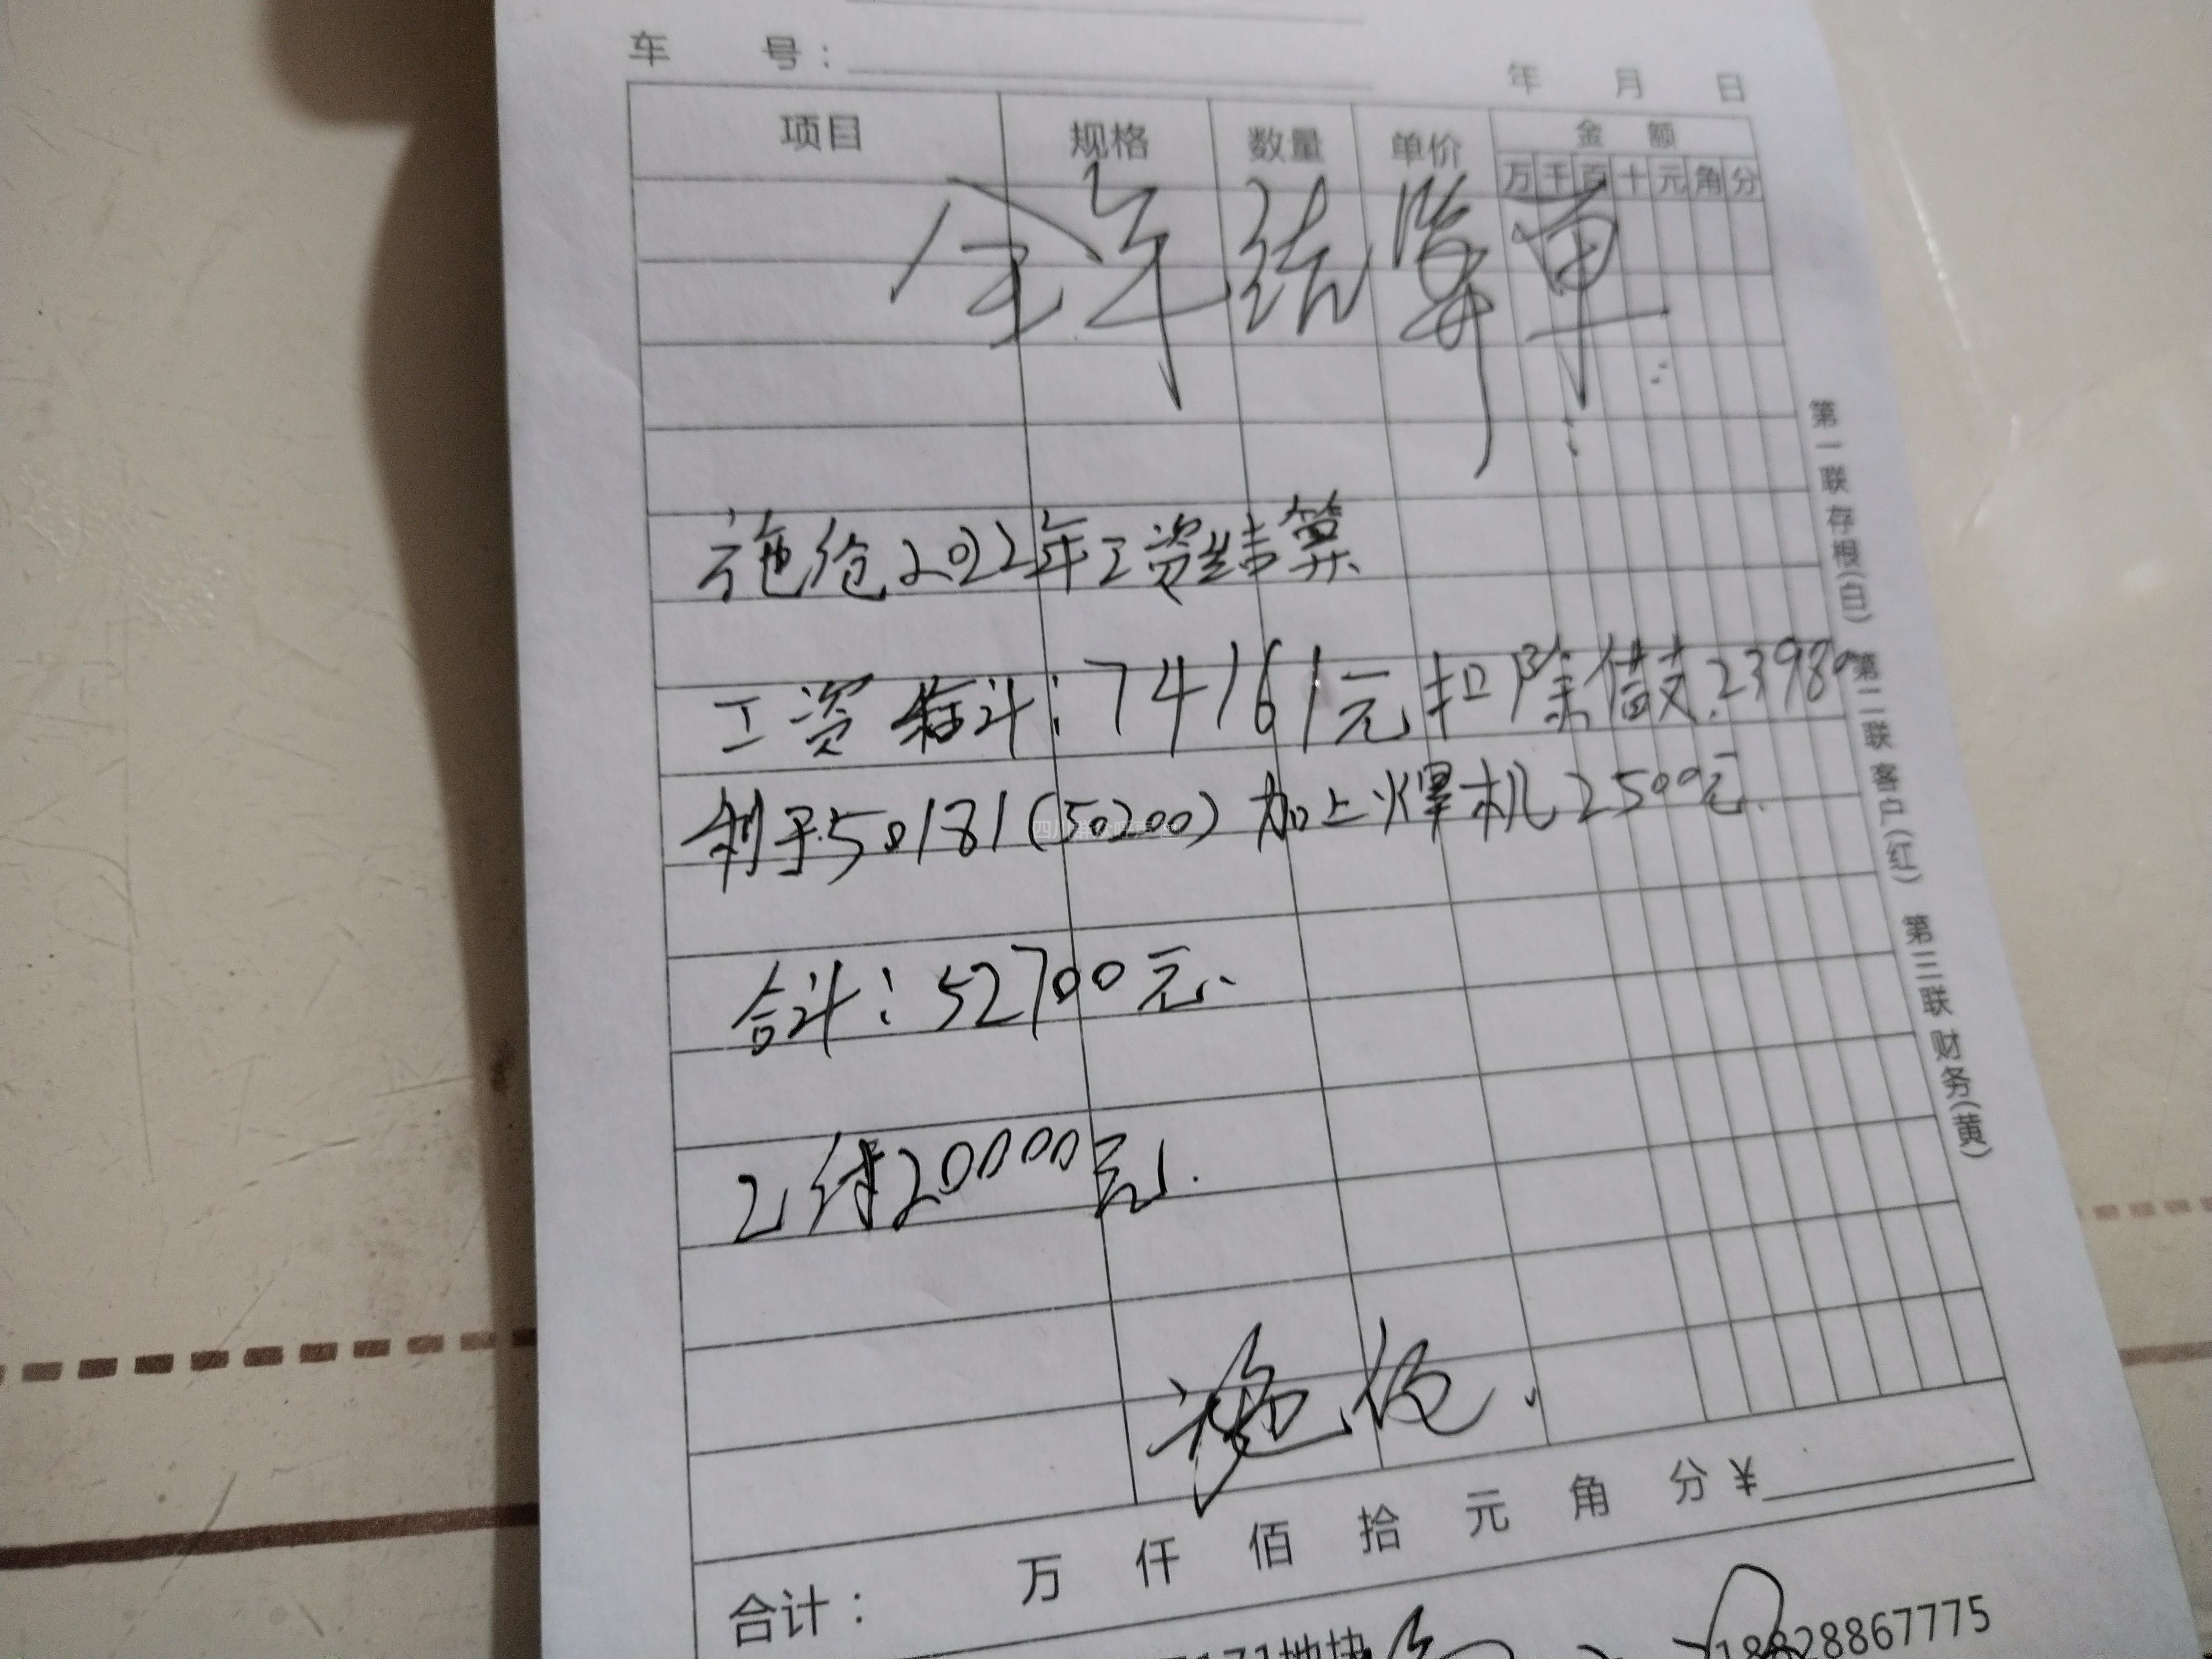 车 号：
年 月 日
项目 规格 数量 单价 金 额
万 千 百 十 元 角 分
全年结算单
施伦2022年工资结算
工资合计：74161元扣除借支.23980
剩于50181(50200)加上焊机2500元.
合计：52700元.
已付20000元.
施伦.
合计： 万 仟 佰 拾 元 角 分 ¥
地块 18828867775
第一联 存根(白) 第二联 客户(红) 第三联 财务(黄)